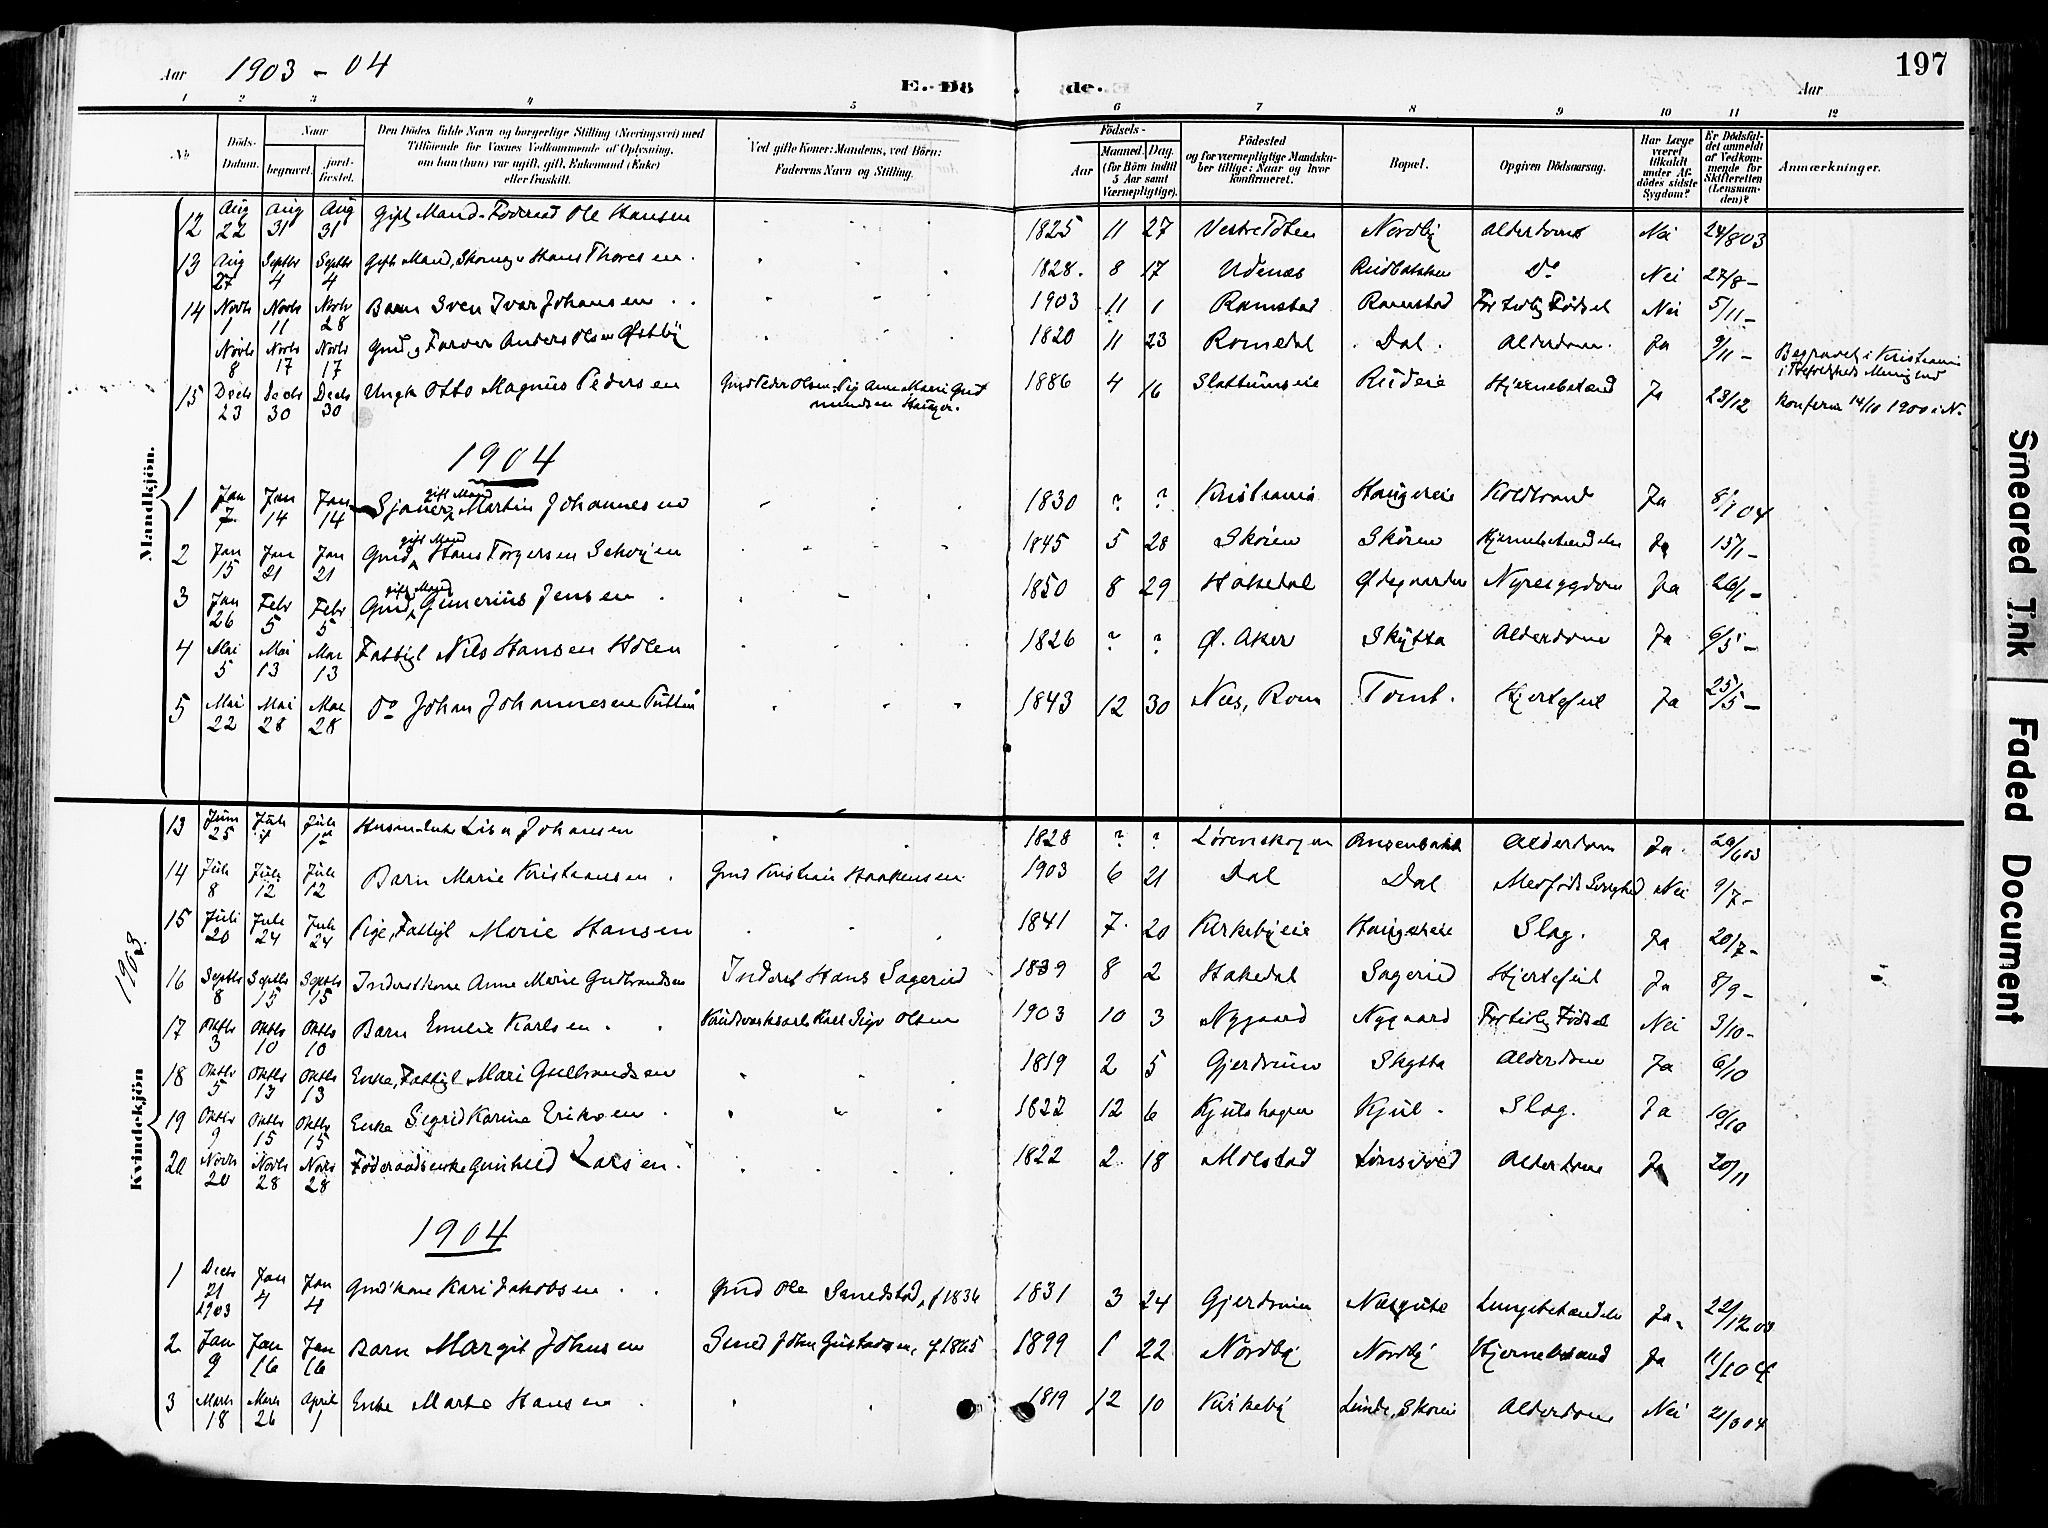 197
Aar 1903 - 04 E. Dø de. Aar
1 2 3 4 5 6 7 8 9 10 11 12
No. Döds-Datum. Naar begravet. jordfæstet. Den Dödes fulde Navn og borgerlige Stilling (Næringsvei) med Tilföiende for Voxnes Vedkommende af Oplysning, om han (hun) var ugift, gift, Enkemand (Enke) eller fraskilt. Ved gifte Koner: Mandens, ved Börn: Faderens Navn og Stilling. Födsels- Aar Maaned. Dag. (for Börn indtil 5 Aar samt Værnepligtige). Födested og for værnepligtige Mandskaber tillige: Naar og hvor konfirmeret. Bopæl. Opgiven Dödsaarsag. Har Læge været tilkaldt under Afdödes sidste Sygdom? Er Dödsfaldet anmeldt af Vedkommende for Skifteretten (Lensmanden)? Anmærkninger.
Mandkjön.
12 Aug 22 Aug 31 Aug 31 Gift Mand. Föderaad Ole Hansen 1825 11 27 Vestre Toten Nordby Alderdoms Nei 24/8 03
13 Aug 27 Septb 4 Septb 4 Gift Mand, Hans Thoresen 1828 8 17 Udenæs Rudbakken Do Nei 27/8 -
14 Novb 1 Novb 11 Novb 28 Barn Sven Ivar Johansen 1903 11 1 Ramstad Ramstad For tidlig Fødsel Nei 5/11 -
Novb 8 Novb 17 Novb 17 Anders Olsen Østby 1820 11 23 Romedal Dal Alderdom Ja 9/11 - Begravet i Kristiania
15 Decb 23 Decb 30 Decb 30 Ungk Otto Magnus Pedersen Gmd Peder Olsen, Pig Anne Marie Gudmundsen Hauger. 1886 4 16 Slattumseie Rudeie Hjernebetænd Ja 23/12 Konfirm 14/10 1900 i N.
1904
1 Jan 7 Jan 14 Jan 14 gift Mand Martin Johannesen 1830 ? ? Kristiania Haugereie Koldbrand Ja 8/1 04
2 Jan 15 Jan 21 Jan 21 Gmd gift Mand Hans Torgersen Schøjen 1845 5 28 Skøien Skøien Hjernebetændelse Ja 15/1 -
3 Jan 26 Febr 5 Febr 5 Gmd gift Mand Gunerius Jensen 1850 8 29 Hakedal Ødegaarden Nyresygdom Ja 26/1 -
4 Mai 5 Mai 13 Mai 13 Fattigl Nils Hansen Holen 1826 ? ? Ø. Aker Skytta Alderdom Ja 6/5 -
5 Mai 22 Mai 28 Mai 28 Do Johan Johannesen Putten 1843 12 30 Næs, Rom Tomt. Hjertefeil Ja 25/5 -
Kvindekjön
1903
13 Juni 25 Juli Juli Lisa Johansen 1828 ? ? Lørenskogen Alderdom Ja. 26/6 03
14 Juli 8 Juli 12 Juli 12 Barn Marie Kristiansen Gmd Kristian Haakensen 1903 6 21 Dal Dal Medfødt Svaghed Nei 9/7 -
15 Juli 20 Juli 24 Juli 24 Pige, Fattigl Marie Hansen 1841 7 20 Kirkebyeie Haugereie Slag. Ja 20/7 -
16 Septb 8 Septb 15 Septb 15 Inderstkone Anne Marie Gudbrandsen Inderst Hans Sagerud 1839 8 2 Hakedal Sagerud Hjertefeil Ja 8/9 -
17 Oktb 3 Oktb 10 Oktb 10 Barn Emelie Karlsen Karl Olsen 1903 10 3 Nygaard Nygaard For tidlig Fødsel Nei 3/10 -
18 Oktb 5 Oktb 13 Oktb 13 Enke, Fattigl Mari Gulbrandsen 1819 2 5 Gjerdrum Skytta Alderdom Ja 6/10
19 Oktbr 9 Oktb 15 Oktb 15 Enke Sigrid Karine Eriksen 1822 12 6 Kjulshagen Kjul Slag. Ja 10/10
20 Novb 20 Novb 28 Novb 28 Føderaadsenke Gunhild Larsen 1822 2 18 Molstad Alderdom Ja 20/11
1904
1 Decb 21 1903 Jan 4 Jan 4 Gmd'kone Kari Jakobsen Gmd Ole Sandstad, f 1836 1831 3 24 Gjerdrum Lungebetændelse Ja 22/12 03
2 Jan 9 Jan 16 Jan 16 Barn Margit Johnsen Smed John Gustavsen, f 1865 1899 1 22 Nordby Nordby Hjernebetænd Ja 11/1 04
3 Marts 18 Marts 26 April 1 Enke Marte Hansen 1819 12 10 Kirkeby Linde, Skøien Alderdom Nei 21/3 04
Smeared Ink
Faded Document